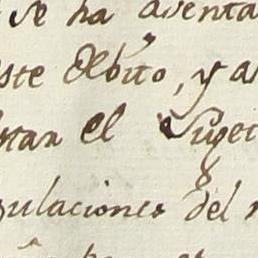 se ha asenta
ste Debito, y a
tan el Suget
pulaciones del